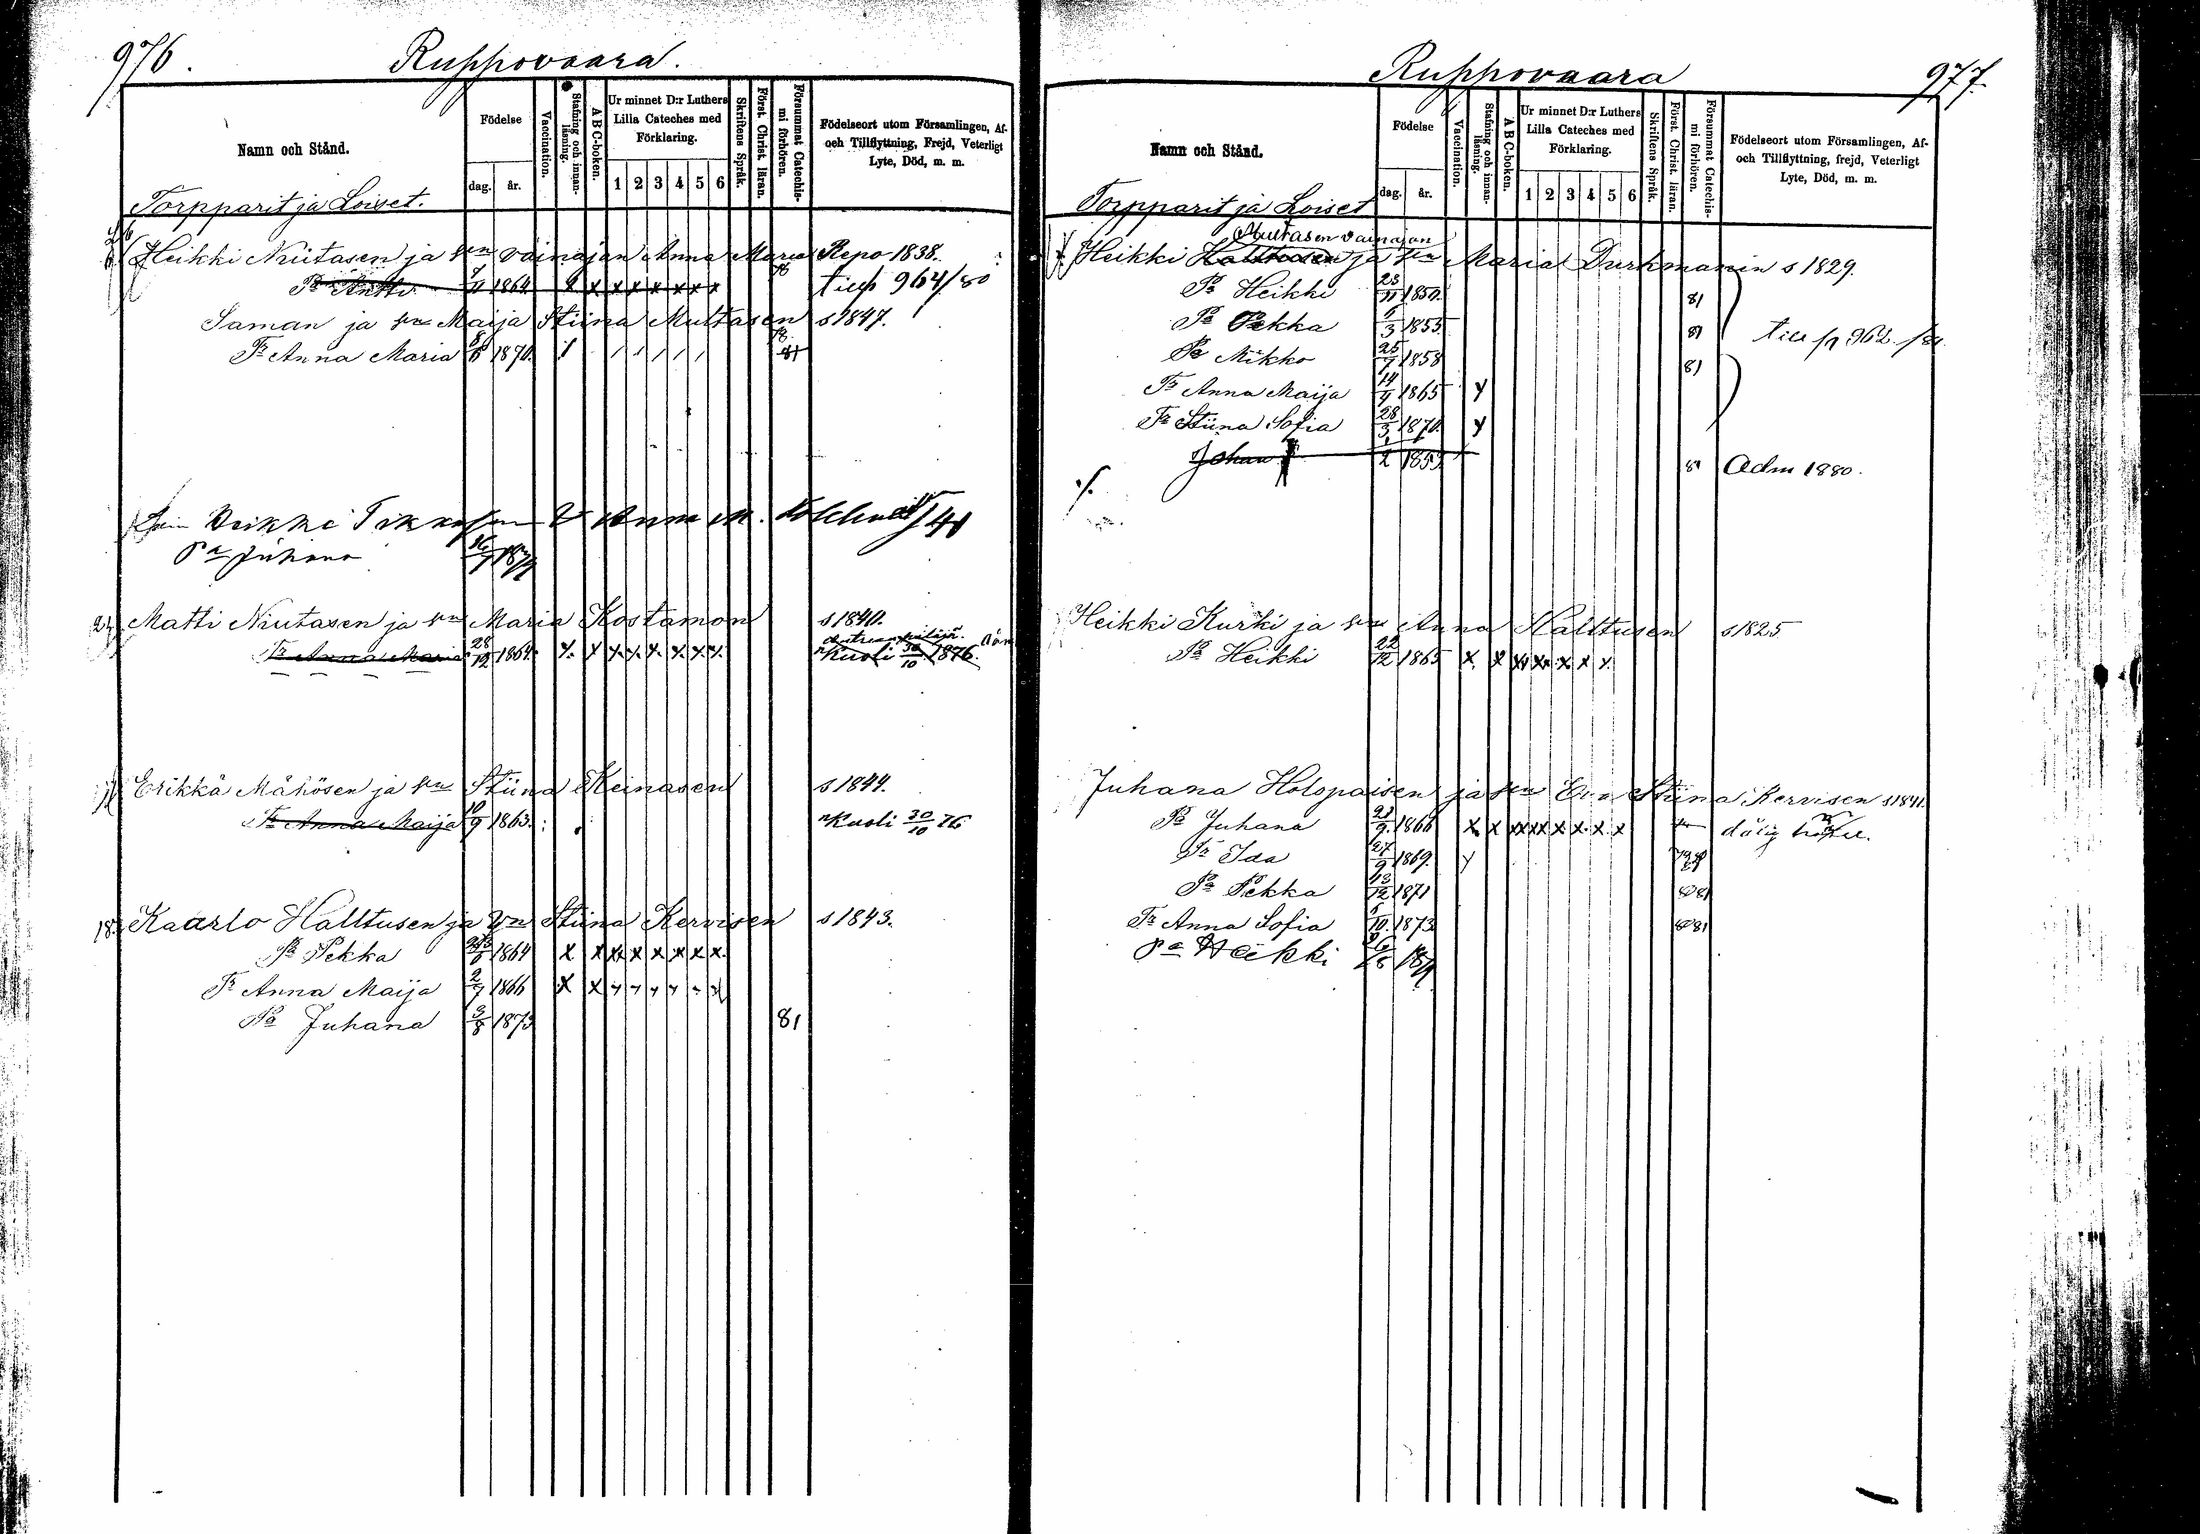 976.
Ruppovaara.
Namn och Stånd.
Födelse
dag.
år.
Vaccination.
Stafning och innanläsning.
ABC-boken.
Ur minnet D:r Luthers Lilla Cateches med Förklaring.
1 2 3 4 5 6
Skriftens Språk.
Först. Christ. läran.
Försummat Catechismi förhören.
Födelseort utom Församlingen, Af- och Tillflyttning, Frejd, Veterligt Lyte, Död, m. m.
Torpparit ja Loiset.
Heikki Niutasen ja vn vainajan Anna Maria Repo 1838.
Pa Antti 7/11 1864 x x x x x x x till p 964/80
Saman ja vn Maija Stiina Multasen s 1847.
Tr Anna Maria 1870. 81
Heikki Anna M.
Pa Juhana
24 Matti Niutasen ja vn Maria Kostamon s 1840.
Tr Anna Maria 28/12 1864. x x x x x x x x Kuoli 30/10 1876.
Erikkä Mähösen ja vn Stiina Keinasen s 1844.
Tr Anna Maija 10/9 1863. Kuoli 30/10 76
18. Kaarlo Halttusen ja vn Stiina Kervisen s 1843.
Pa Pekka 1864 x x xx x x x x x
Tr Anna Maija 2/7 1866 x x
Pa Juhana 3/8 1873 81
Ruppovaara
977.
Namn och Stånd.
Födelse
dag.
år.
Vaccination.
Stafning och innanläsning.
ABC-boken.
Ur minnet D:r Luthers Lilla Cateches med Förklaring.
1 2 3 4 5 6
Skriftens Språk.
Först. Christ. läran.
Försummat Catechismi förhören.
Födelseort utom Församlingen, Af- och Tillflyttning, frejd, Veterligt Lyte, Död, m. m.
Torpparit ja Loiset
Niutasen vainajan
Heikki Halttusen ja vn Maria Durkmanin s 1829.
Pa Heikki 23/11 1850. 81
Pa Pekka 1855. 81 till p 962
Pa Mikko 25/7 1858 81
Tr Anna Maija 1865 y
Tr Stiina Sofia 28/3 1870. y
Johan 1853 81 Adm 1880.
Heikki Kurki ja vn Anna Halttusen s 1825
Pa Heikki 22/12 1865 x x xx xx x x x
Juhana Holopaisen ja vn Eva Stiina Kervisen s 1841.
Pa Juhana 1866 x x xx xx x x x x dålig
Tr Ida 27/9 1869. y
Pa Pekka 13/12 1871 80 81
Tr Anna Sofia 1873 80 81
Pa Heikki